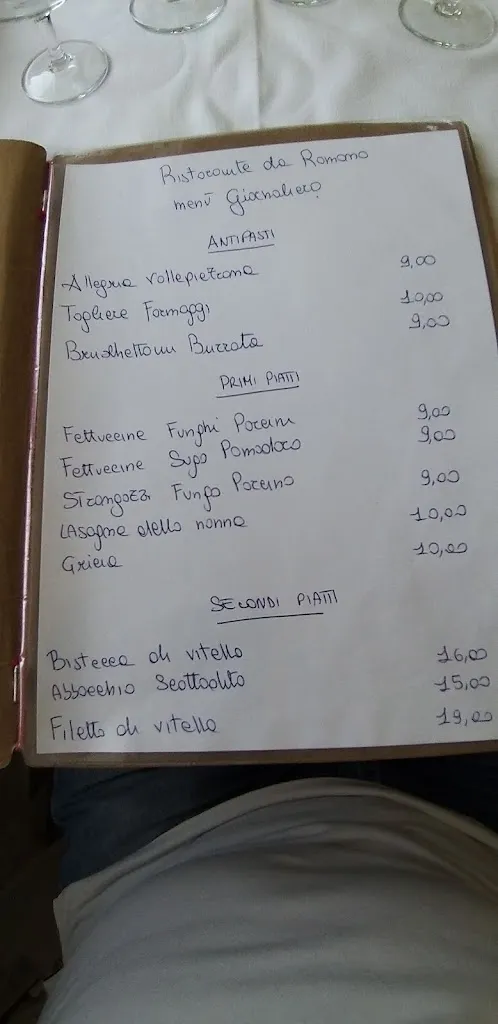 Ristorante da Romano
menù Giornaliero
ANTIPASTI
Allegria Vallepietrana 9,00
Tagliere Formaggi 10,00
Bruschettoni Burrata 9,00
PRIMI PIATTI
Fettuccine Funghi Porcini 9,00
Fettuccine Sugo Pomodoro 9,00
Strangozzi Fungo Porcino 9,00
LAsagne della nonna 10,00
Gricia 10,00
SECONDI PIATTI
Bistecca di vitello 16,00
Abbacchio Scottadito 15,00
Filetto di vitello 19,00